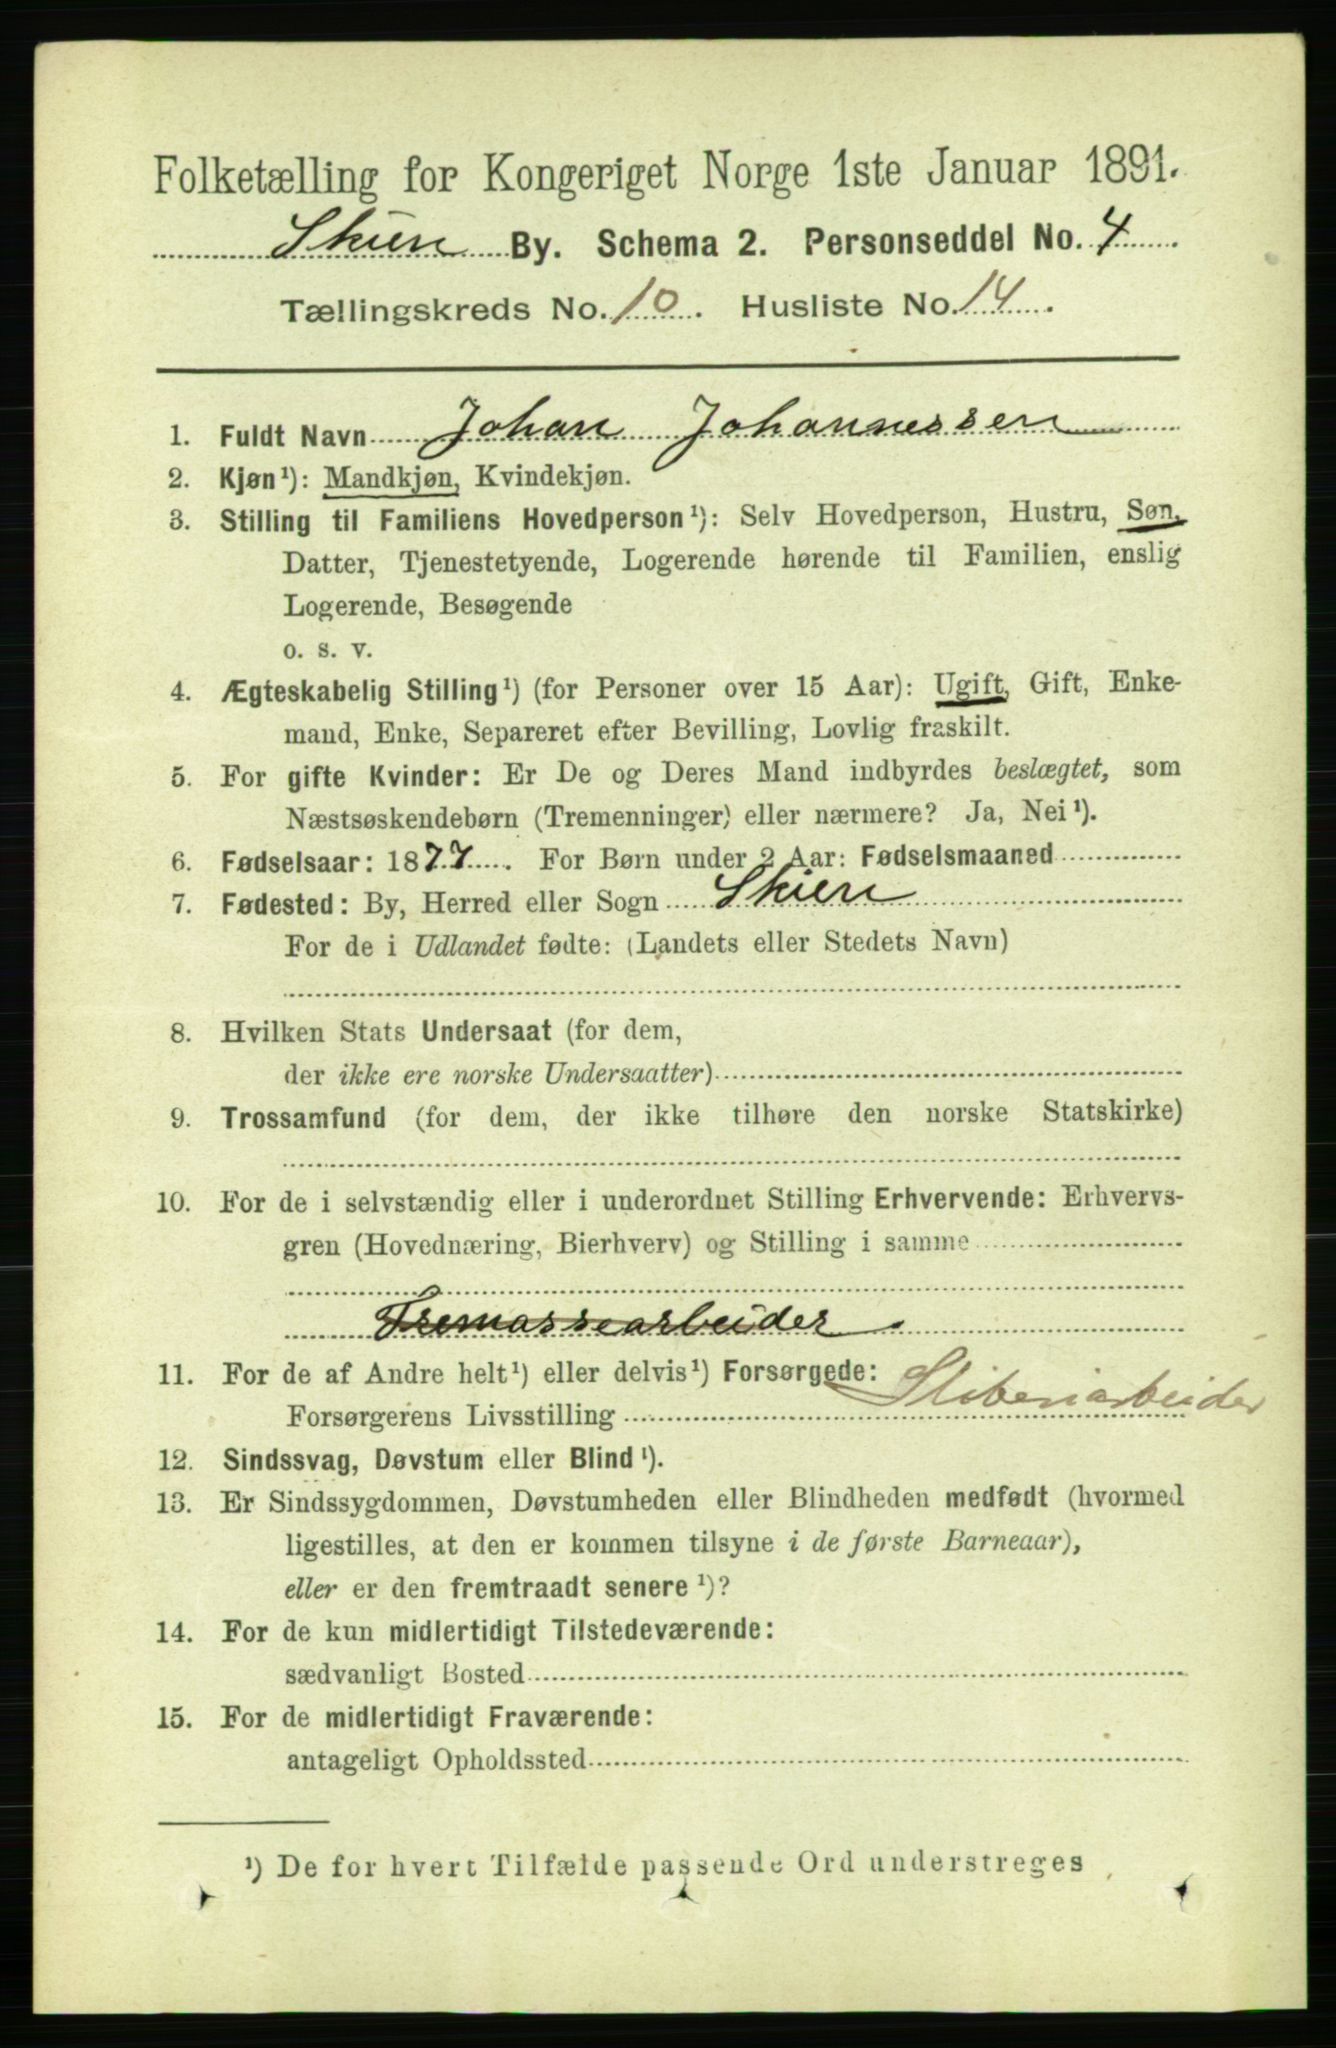 Folketælling for Kongeriget Norge 1ste Januar 1891.
Skien By. Schema 2. Personseddel No. 4
Tællingskreds No. 10. Husliste No. 14.
1. Fuldt Navn Johan Johannessen
2. Kjøn¹): Mandkjøn, Kvindekjøn.
3. Stilling til Familiens Hovedperson¹): Selv Hovedperson, Hustru, Søn,
Datter, Tjenestetyende, Logerende hørende til Familien, enslig
Logerende, Besøgende
o. s. v.
4. Ægteskabelig Stilling¹) (for Personer over 15 Aar): Ugift, Gift, Enke-
mand, Enke, Separeret efter Bevilling, Lovlig fraskilt.
5. For gifte Kvinder: Er De og Deres Mand indbyrdes beslægtet, som
Næstsøskendebørn (Tremenninger) eller nærmere? Ja, Nei¹).
6. Fødselsaar: 1877. For Børn under 2 Aar: Fødselsmaaned
7. Fødested: By, Herred eller Sogn Skien
For de i Udlandet fødte: (Landets eller Stedets Navn)
8. Hvilken Stats Undersaat (for dem,
der ikke ere norske Undersaatter)
9. Trossamfund (for dem, der ikke tilhøre den norske Statskirke)
10. For de i selvstændig eller i underordnet Stilling Erhvervende: Erhvervs-
gren (Hovednæring, Bierhverv) og Stilling i samme
Tremassearbeider.
11. For de af Andre helt¹) eller delvis¹) Forsørgede:
Forsørgerens Livsstilling Sliberiarbeider
12. Sindssvag, Døvstum eller Blind¹).
13. Er Sindssygdommen, Døvstumheden eller Blindheden medfødt (hvormed
ligestilles, at den er kommen tilsyne i de første Barneaar),
eller er den fremtraadt senere¹)?
14. For de kun midlertidigt Tilstedeværende:
sædvanligt Bosted
15. For de midlertidigt Fraværende:
antageligt Opholdssted
¹) De for hvert Tilfælde passende Ord understreges